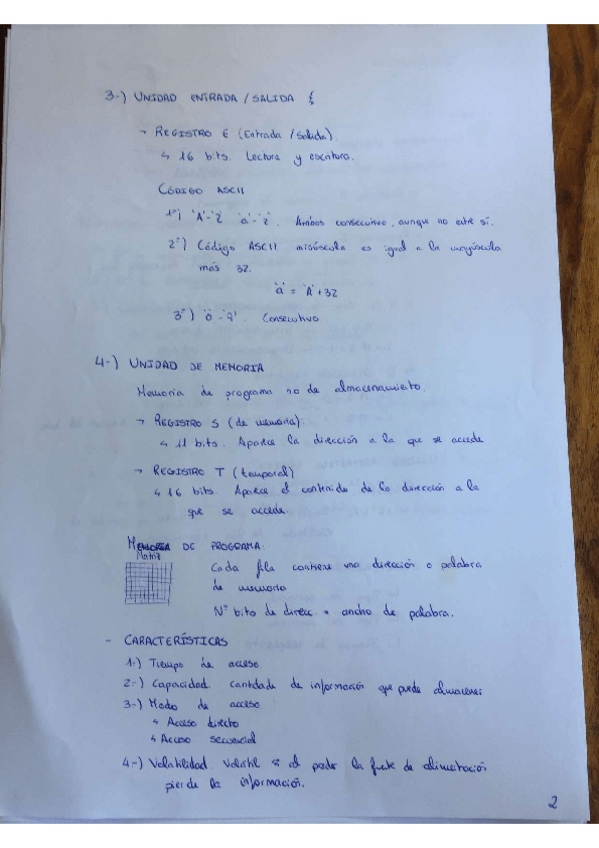 3-) UNIDAD ENTRADA / SALIDA {
→ REGISTRO E (Entrada / Salida).
↳ 16 bits. Lectura y escritura.
CÓDIGO ASCII
1º) 'A'-'Z 'a'-'z'. Ambos consecutivo, aunque no entre sí.
2º) Código ASCII minúscula es igual a la mayúscula
más 32.
'a' = 'A'+32
3º) Consecutivo
4-) UNIDAD DE MEMORIA
Memoria de programa no de almacenamiento.
→ REGISTRO S (de memoria).
↳ 11 bits. Aparece la dirección a la que se accede
→ REGISTRO T (temporal)
↳ 16 bits. Aparece el contenido de la dirección a la
que se accede.
MEMORIA DE PROGRAMA.
Matriz
Cada fila contiene una dirección o palabra
de memoria
Nº bits de direcc = ancho de palabra.
- CARACTERÍSTICAS
1-) Tiempo de acceso
2-) Capacidad. Cantidade de información que puede almacener
3-) Modo de acceso
↳ Acceso directo
↳ Acceso secuencial
4-) Volatilidad. Volátil si al perder la fuente de alimentación
pierde la información.
2